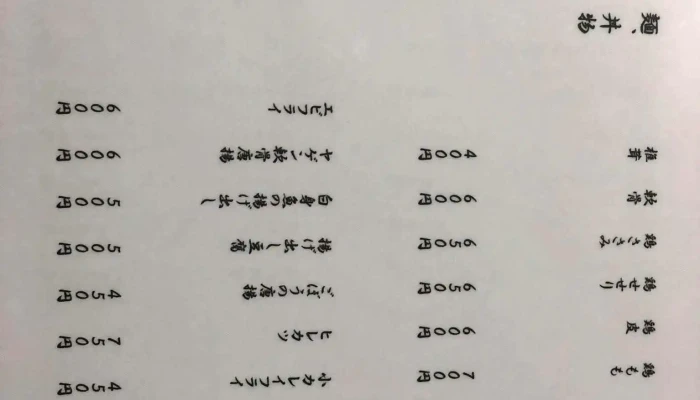 鶏もも 700円
鶏皮 600円
鶏せせり 650円
鶏ささみ 650円
軟骨 600円
椎茸 400円
小カレイフライ 450円
ヒレカツ 750円
ごぼうの唐揚 450円
揚げ出し豆腐 500円
白身魚の揚げ出し 500円
ヤゲン軟骨唐揚 600円
エビフライ 600円
麺、丼物